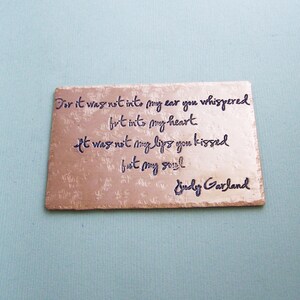 For it was not into my ear you whispered
but into my heart
It was not my lips you kissed
but my soul
Judy Garland